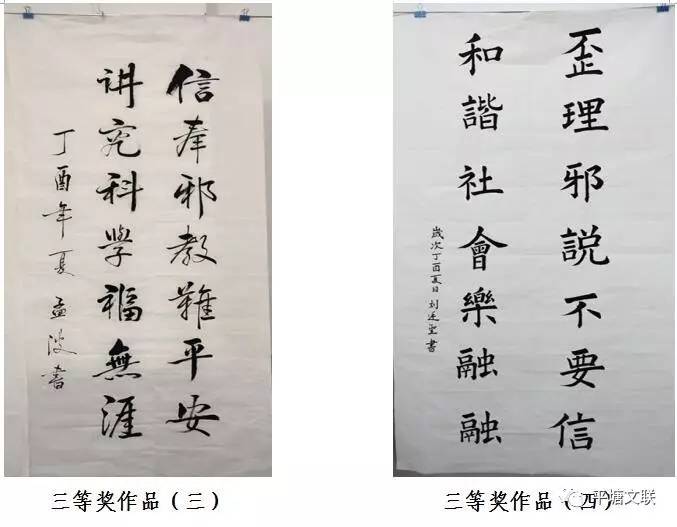 信奉邪教難平安
讲究科學福無涯
丁酉年夏 孟波書
歪理邪説不要信
和諧社會樂融融
歲次丁酉夏日 刘廷
書
三等奖作品（三）
三等奖作品（四）
平塘文联